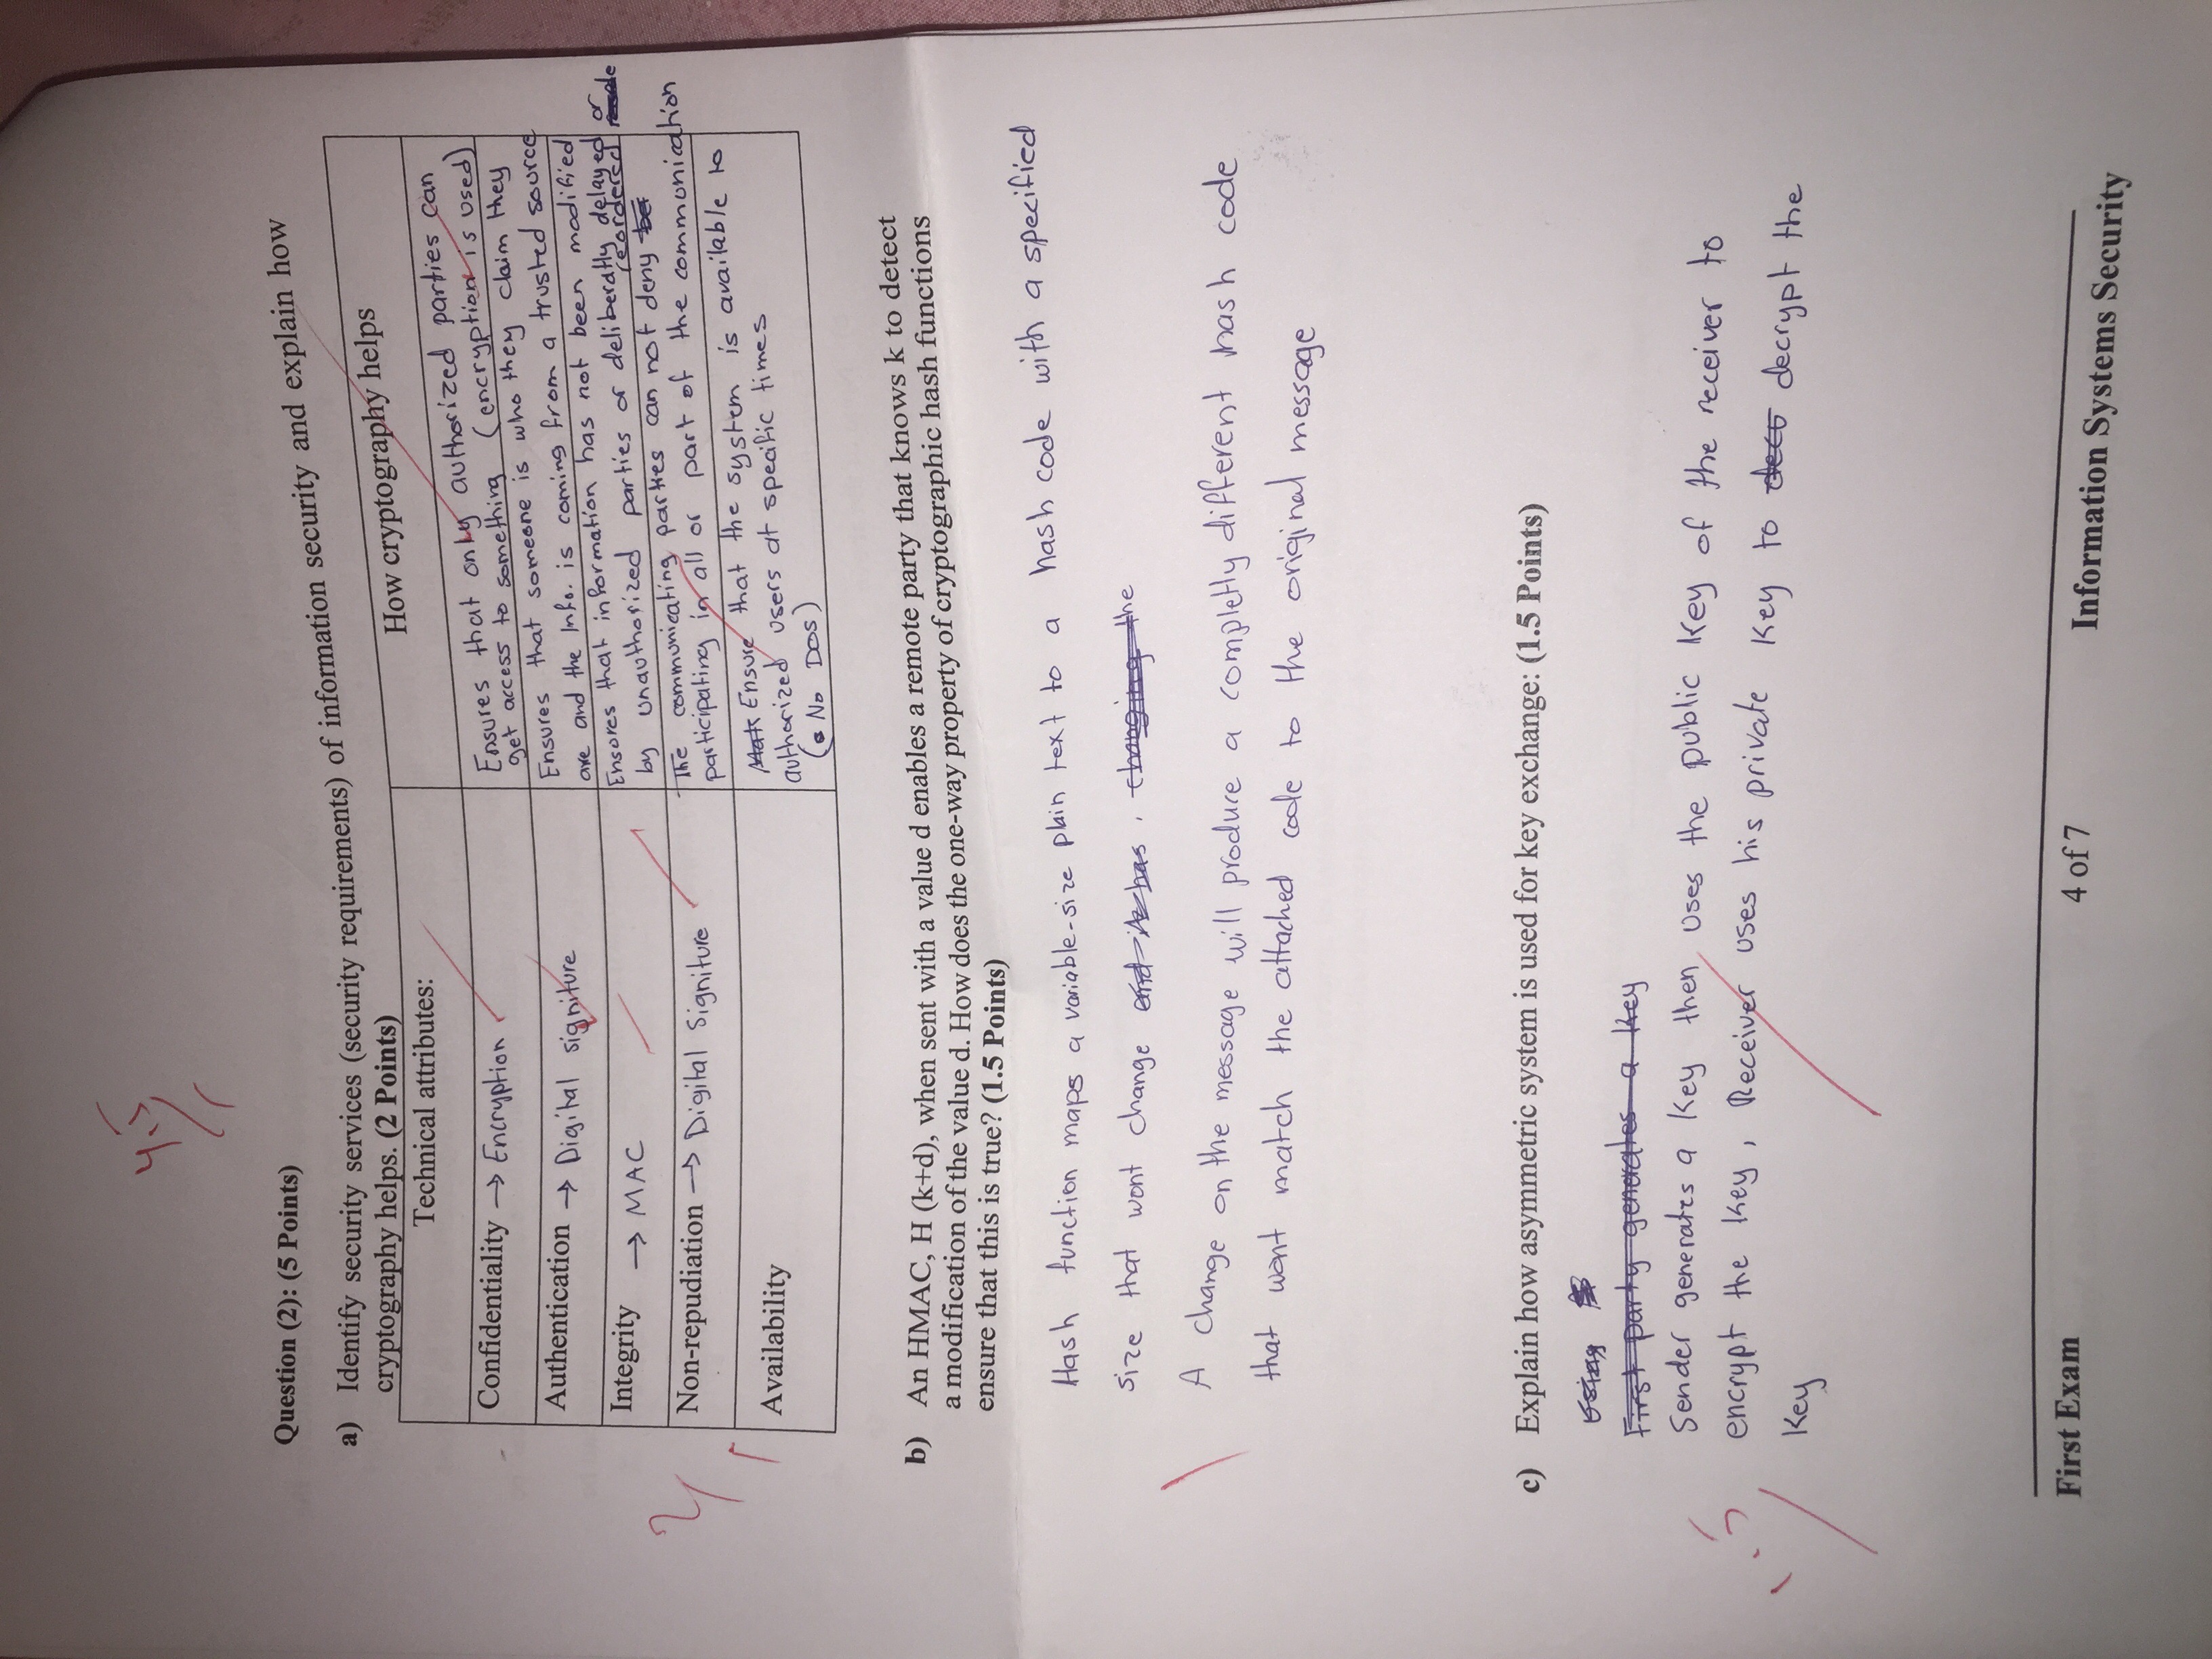 4.5
Question (2): (5 Points)
a) Identify security services (security requirements) of information security and explain how
cryptography helps. (2 Points)
Technical attributes:
How cryptography helps
Confidentiality → Encryption
Ensures that only authorized parties can
get access to something (encryption is used)
Authentication → Digital signiture
Ensures that someone is who they claim they
are and the Info. is coming from a trusted source
Integrity → MAC
Ensores that information has not been modified
by unauthorized parties or deliberatly delayed or
reordered
Non-repudiation → Digital Signiture
The communicating parties can not deny
participating in all or part of the communication
Availability
Ensure that the system is available to
authorized users at specific times
(No DOS)
2
b) An HMAC, H (k+d), when sent with a value d enables a remote party that knows k to detect
a modification of the value d. How does the one-way property of cryptographic hash functions
ensure that this is true? (1.5 Points)
Hash function maps a variable-size plain text to a hash code with a specified
size that wont change and it has , changing the
A change on the message will produce a completly different hash code
that wont match the attached code to the original message
1
c) Explain how asymmetric system is used for key exchange: (1.5 Points)
Using
First party generates a key
Sender generates a key then uses the public key of the receiver to
encrypt the key, Receiver uses his private key to decrypt the
key
1.5
First Exam
4 of 7
Information Systems Security